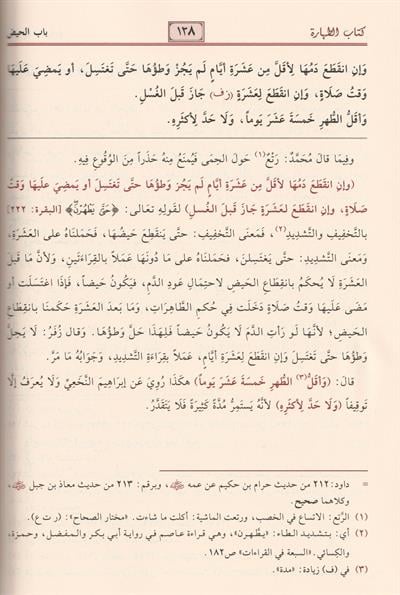 كتاب الطهارة ١٣٨ باب الحيض
وَإنِ انقَطَعَ دَمُهَا لِأَقَلَّ مِن عَشَرَةِ أيَّامٍ لَم يَجُز وَطؤُهَا حَتَّى تَغتَسِلَ، أو يَمضِيَ عَلَيهَا
وَقتُ صَلَاةٍ، وَإن انقَطَعَ لِعَشَرَةٍ (زف) جَازَ قَبلَ الغُسلِ.
وَأقَلُّ الطُّهرِ خَمسَةَ عَشَرَ يَوماً، وَلَا حَدَّ لِأكثَرِهِ.
وفِيمَا قالَ مُحَمَّدٌ: رَتْعٌ(١) حَولَ الحِمَى فَيُمنَعُ مِنهُ حَذَراً مِنَ الوُقُوعِ فِيهِ.
(وإن انقَطَعَ دَمُهَا لِأقَلَّ مِن عَشَرَةِ أيَّامٍ لَم يَجُز وَطؤُهَا حَتَّى تَغتَسِلَ أو يَمضِيَ عَلَيهَا وَقتُ
صَلَاةٍ، وَإن انقَطَعَ لِعَشَرَةٍ جَازَ قَبلَ الغُسلِ) لقَولِهِ تعالى: ﴿حَتَّىٰ يَطْهُرْنَ﴾ [البقرة: ٢٢٢]
بالتَّخفِيفِ والتَّشدِيدِ(٢)، فَمَعنَى التَّخفِيفِ: حتى يَنقَطِعَ حَيضُهَا، فَحَمَلنَاهُ على العَشَرَةِ،
وَمَعنَى التَّشدِيدِ: حتى يَغتَسِلنَ، فَحَمَلنَاهُ على مَا دُونَهَا عَمَلاً بالقِرَاءَتَينِ، ولأنَّ مَا قَبلَ
العَشَرَةِ لَا يُحكَمُ بانقِطَاعِ الحَيضِ لاحتِمَالِ عَودِ الدَّمِ، فَيكُونُ حَيضاً، فَإذَا اغتَسَلَت أو
مَضَى عَلَيهَا وَقتُ صَلَاةٍ دَخَلَت فِي حُكمِ الطَّاهِرَاتِ، وَمَا بَعدَ العَشَرَةِ حَكَمنَا بانقِطَاعِ
الحَيضِ؛ لأنَّهَا لَو رَأتِ الدَّمَ لَا يَكُونُ حَيضاً فَلِهَذَا حَلَّ وَطؤُهَا. وقال زُفَرُ: لَا يَحِلُّ
وَطؤُهَا حتَّى تَغتَسِلَ وَإن انقَطَعَ لِعَشَرَةِ أيَّامٍ، عَمَلاً بقِرَاءَةِ التَّشدِيدِ، وَجَوَابُهُ مَا مَرَّ.
قال: (وَأقَلُّ(٣) الطُّهرِ خَمسَةَ عَشَرَ يَوماً) هكَذَا رُوِيَ عَن إبرَاهِيمَ النَّخَعِيِّ وَلَا يُعرَفُ إلَّا
تَوقِيفاً (وَلَا حَدَّ لِأكثَرِهِ) لأنَّهُ يَستَمِرُّ مُدَّةً كَثِيرَةً فَلَا يَتَقَدَّرُ.
= داود: ٢١٢ من حديث حرام بن حكيم عن عمه ﷺ، وبرقم: ٢١٣ من حديث معاذ بن جبل ﷺ،
وكلاهما صحيح.
(١) الرَّتع: الاتساع في الخصب، ورتعت الماشية: أكلت ما شاءت. «مختار الصحاح»: (ر ت ع).
(٢) أي: بتشديد الطاء: «يطَّهرن»، وهي قراءة عاصم في رواية أبي بكر والمفضل، وحمزة،
والكسائي. «السبعة في القراءات» ص١٨٢.
(٣) في (ف) زيادة: «مدة».